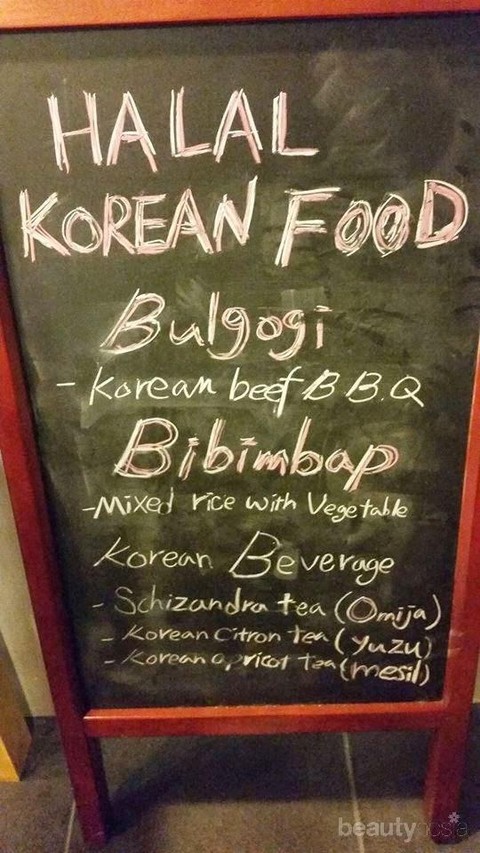 HALAL
KOREAN FOOD
Bulgogi
- Korean beef B B.Q
Bibimbap
-Mixed rice with Vegetable
Korean Beverage
- Schizandra tea (Omija)
- Korean Citron tea (yuzu)
- Korean apricot tea (mesil)
beautynesia